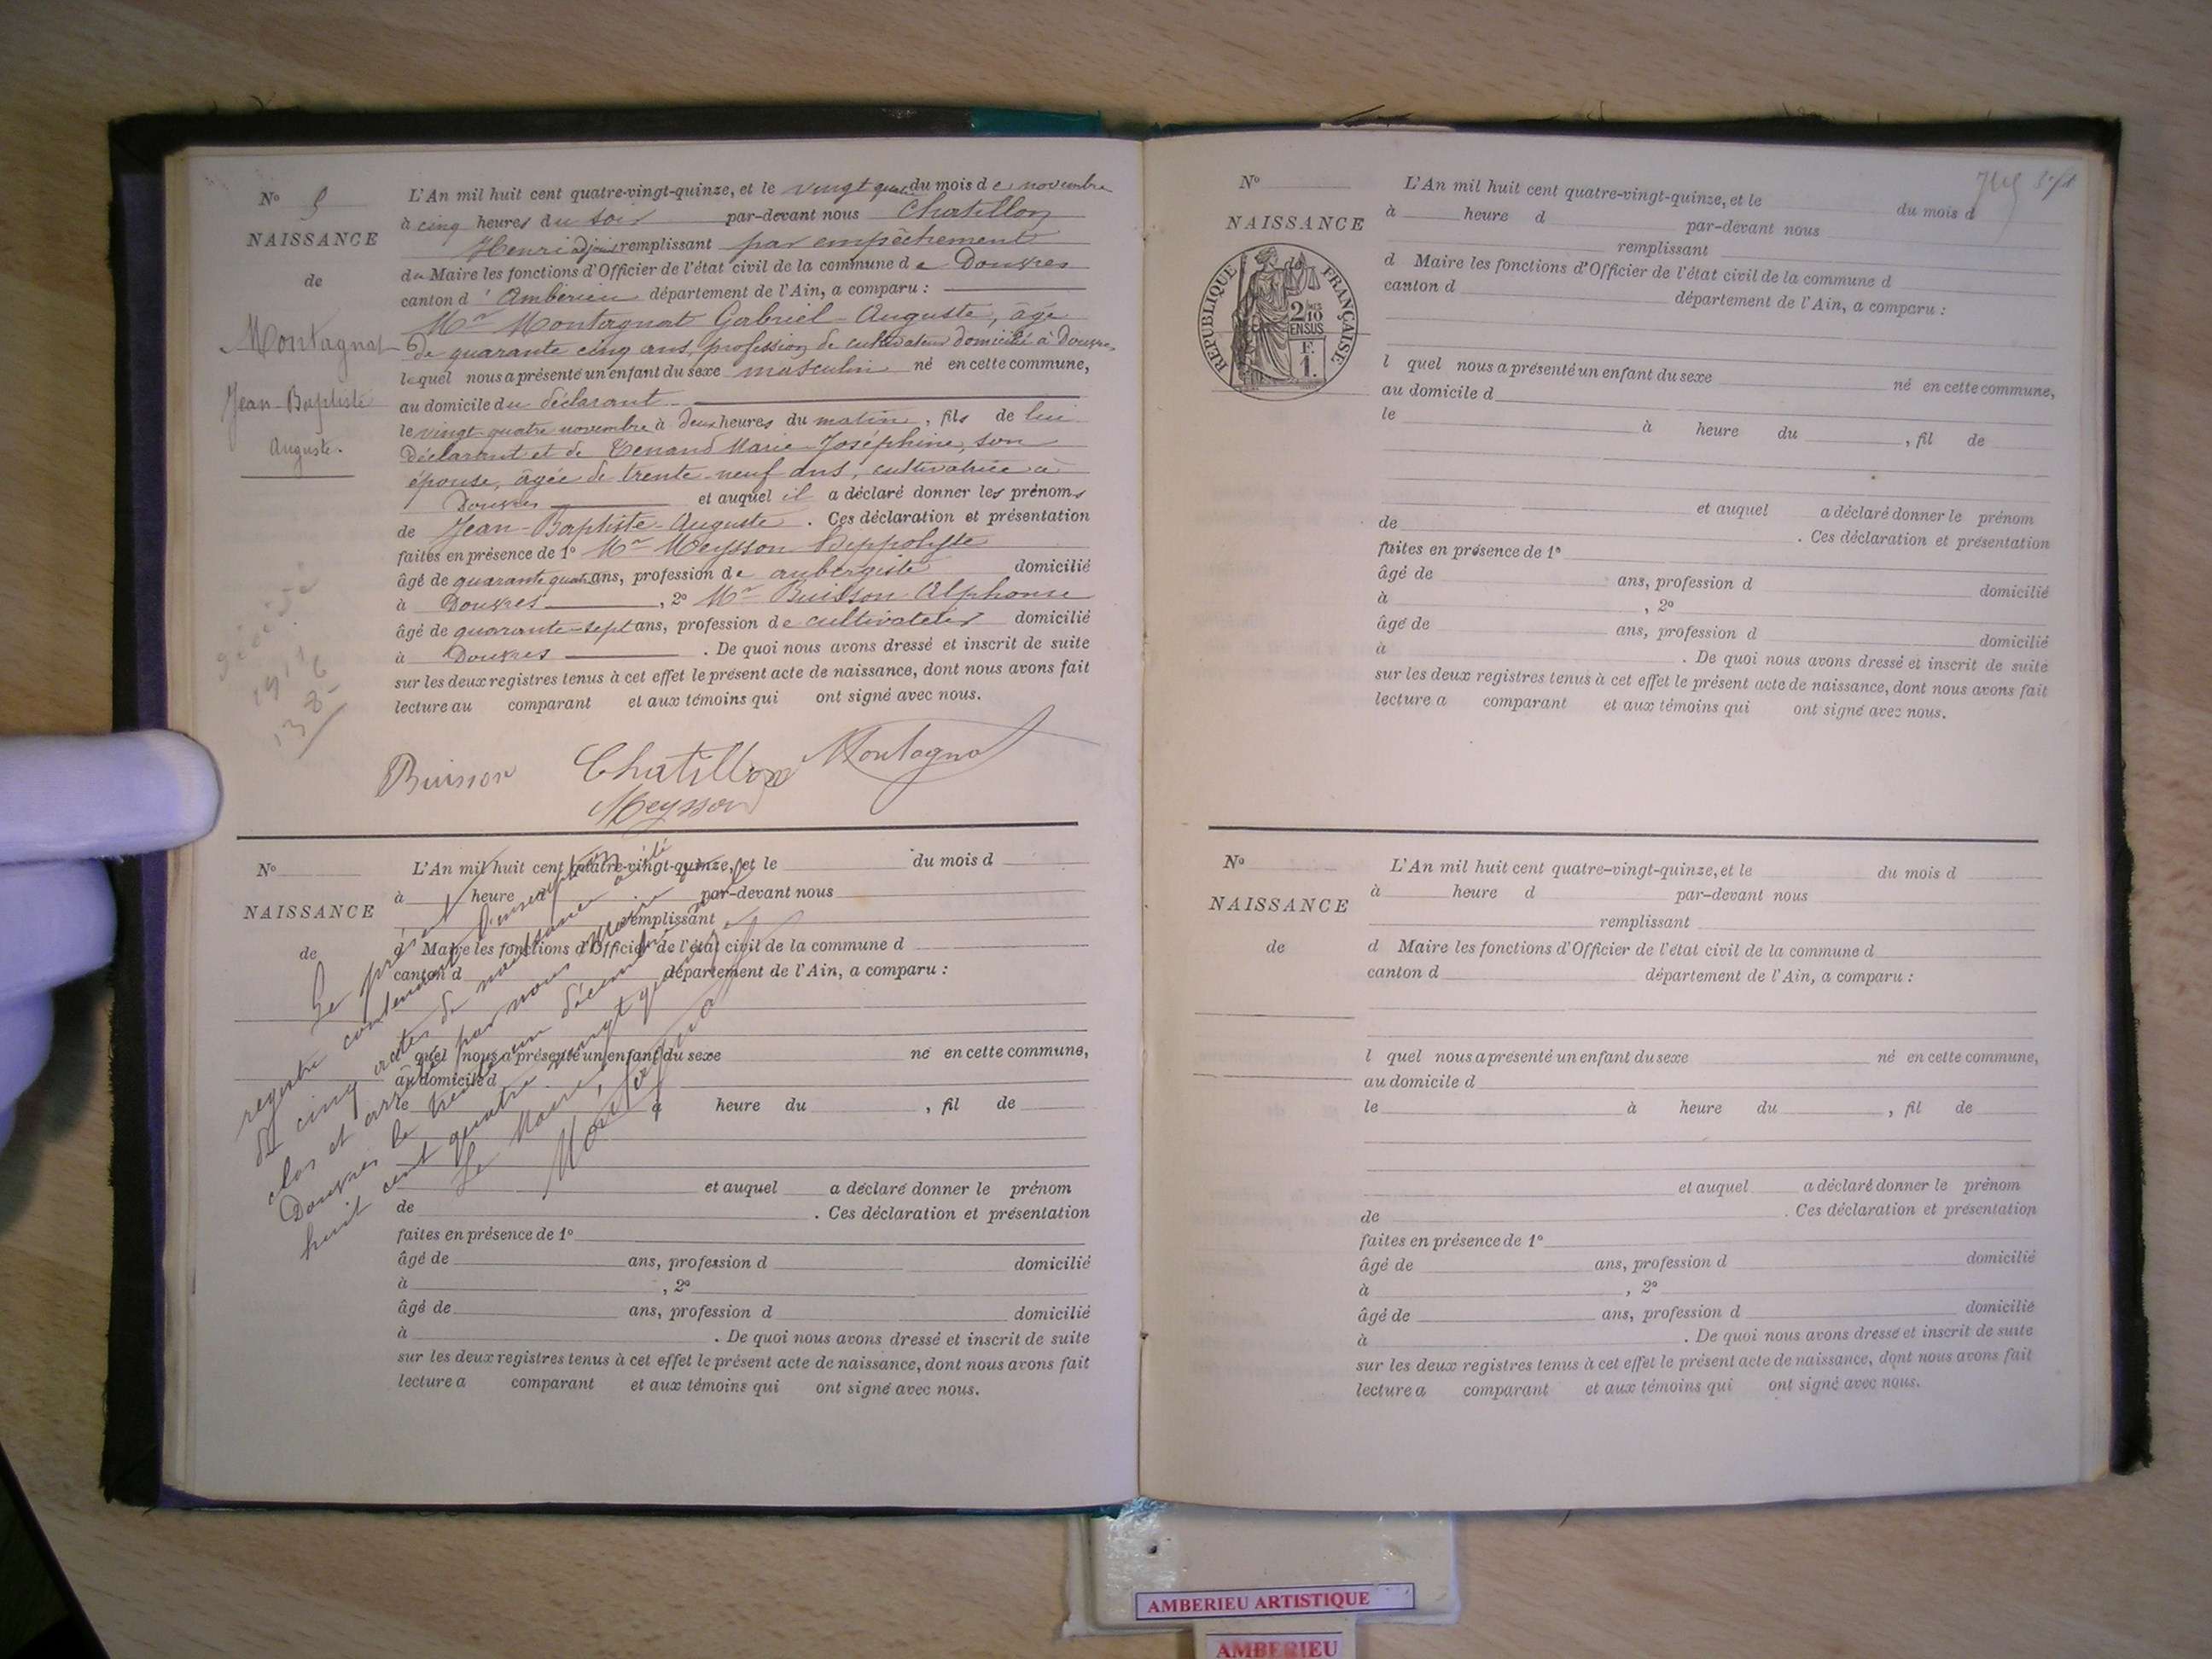 N° 5
NAISSANCE
de
Montagnat
Jean-Baptiste
Auguste.
décédé
1916
138
L'An mil huit cent quatre-vingt-quinze, et le vingt quatre du mois de novembre
à cinq heures du soir par-devant nous Chatillon
Henri adjoint remplissant par empêchement
du Maire les fonctions d'Officier de l'état civil de la commune de Douvres
canton d'Ambérieu département de l'Ain, a comparu :
Mr Montagnat Gabriel-Auguste, âgé
de quarante cinq ans, profession de cultivateur domicilié à Douvres,
lequel nous a présenté un enfant du sexe masculin né en cette commune,
au domicile du déclarant
le vingt-quatre novembre à deux heures du matin, fils de lui
déclarant et de Tenand Marie-Joséphine, son
épouse, âgée de trente-neuf ans, cultivatrice à
Douvres et auquel il a déclaré donner les prénoms
de Jean-Baptiste-Auguste. Ces déclaration et présentation
faites en présence de 1° Mr Meysson Hippolyte
âgé de quarante quatre ans, profession de aubergiste domicilié
à Douvres, 2° Mr Buisson Alphonse
âgé de quarante-sept ans, profession de cultivateur domicilié
à Douvres. De quoi nous avons dressé et inscrit de suite
sur les deux registres tenus à cet effet le présent acte de naissance, dont nous avons fait
lecture au comparant et aux témoins qui ont signé avec nous.
Buisson Chatillon Montagnat
Meysson
N°
NAISSANCE
de
L'An mil huit cent quatre-vingt-quinze, et le du mois d
à heure d par-devant nous
remplissant
d Maire les fonctions d'Officier de l'état civil de la commune d
canton d département de l'Ain, a comparu :
l quel nous a présenté un enfant du sexe né en cette commune,
au domicile d
le à heure du , fil de
et auquel a déclaré donner le prénom
de . Ces déclaration et présentation
faites en présence de 1°
âgé de ans, profession d domicilié
à , 2°
âgé de ans, profession d domicilié
à . De quoi nous avons dressé et inscrit de suite
sur les deux registres tenus à cet effet le présent acte de naissance, dont nous avons fait
lecture a comparant et aux témoins qui ont signé avec nous.
Le présent
registre contenant
de cinq actes de naissance a été
clos et arrêté par nous maire de
Douvres le trente un décembre mil
huit cent quatre vingt quinze
Le Maire,
Montagnat
N°
NAISSANCE
RÉPUBLIQUE FRANÇAISE
2/10
EN SUS
F.
1.
L'An mil huit cent quatre-vingt-quinze, et le du mois d
à heure d par-devant nous
remplissant
d Maire les fonctions d'Officier de l'état civil de la commune d
canton d département de l'Ain, a comparu :
l quel nous a présenté un enfant du sexe né en cette commune,
au domicile d
le à heure du , fil de
et auquel a déclaré donner le prénom
de . Ces déclaration et présentation
faites en présence de 1°
âgé de ans, profession d domicilié
à , 2°
âgé de ans, profession d domicilié
à . De quoi nous avons dressé et inscrit de suite
sur les deux registres tenus à cet effet le présent acte de naissance, dont nous avons fait
lecture a comparant et aux témoins qui ont signé avec nous.
N°
NAISSANCE
de
L'An mil huit cent quatre-vingt-quinze, et le du mois d
à heure d par-devant nous
remplissant
d Maire les fonctions d'Officier de l'état civil de la commune d
canton d département de l'Ain, a comparu :
l quel nous a présenté un enfant du sexe né en cette commune,
au domicile d
le à heure du , fil de
et auquel a déclaré donner le prénom
de . Ces déclaration et présentation
faites en présence de 1°
âgé de ans, profession d domicilié
à , 2°
âgé de ans, profession d domicilié
à . De quoi nous avons dressé et inscrit de suite
sur les deux registres tenus à cet effet le présent acte de naissance, dont nous avons fait
lecture a comparant et aux témoins qui ont signé avec nous.
AMBERIEU ARTISTIQUE
AMBERIEU